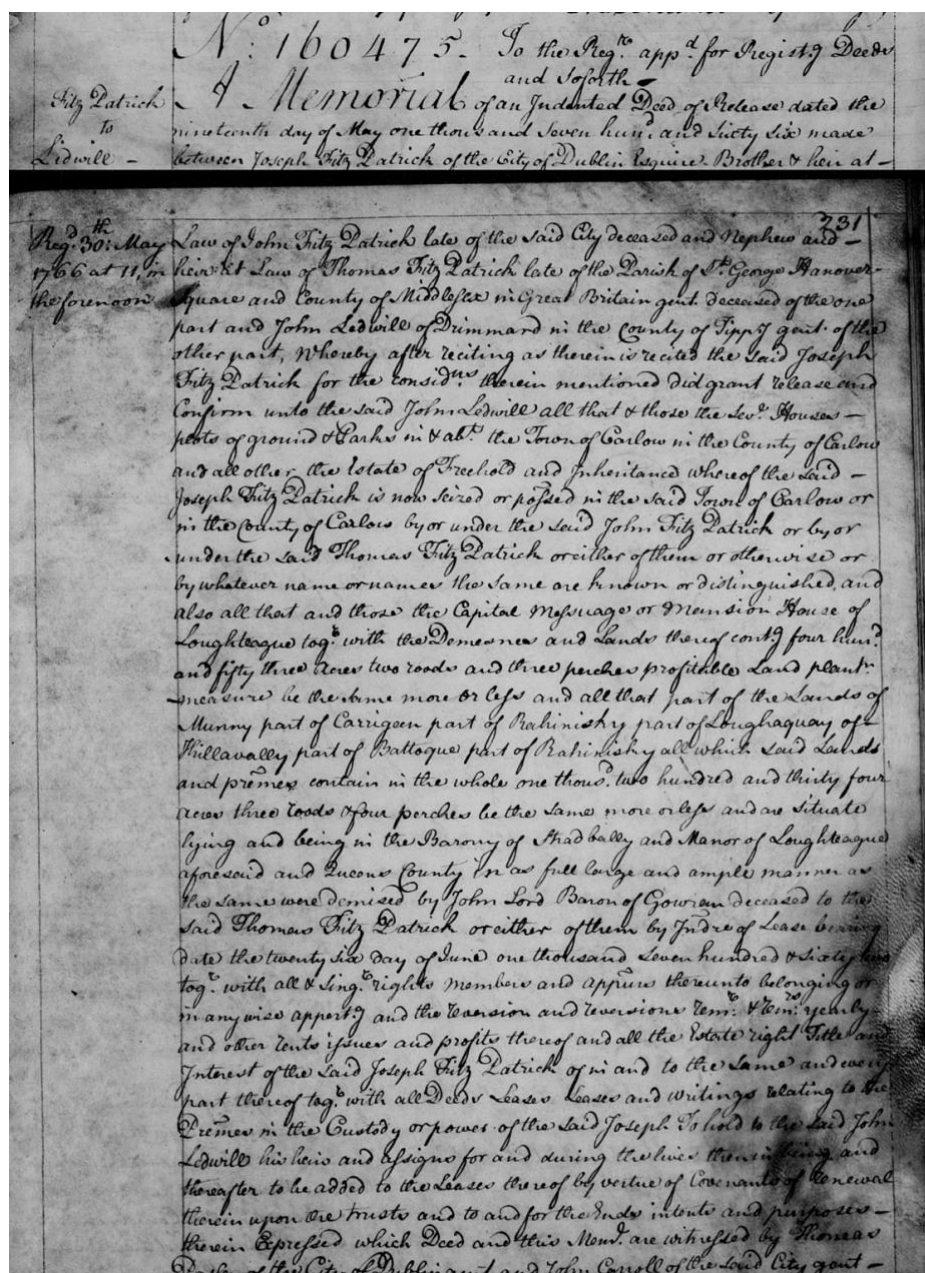 No. 160475. To the Regr. appd. for Registg Deeds
and soforth
Fitz Patrick
to
Lidwill -
A Memorial of an Indented Deed of Release dated the
nineteenth day of May one thousand Seven hund. and Sixty Six made
between Joseph Fitz Patrick of the City of Dublin Esquire Brother & heir at -
231
Regd. 30th May
1766 at 11, in
the forenoon
Law of John Fitz Patrick late of the said City deceased and Nephew and -
heir at Law of Thomas Fitz Patrick late of the Parish of St. George Hanover-
Square and County of Middlesex in Great Britain gent. deceased of the one
part and John Ledwill of Drimmard in the County of Tippy gent. of the
other part, Whereby after reciting as therein is recited the said Joseph
Fitz Patrick for the considns. therein mentioned did grant release and
Confirm unto the said John Ledwill all that & those the sevl. Houses -
plots of ground & Parks in & abt. the Town of Carlow in the County of Carlow
and all other the Estate of Freehold and Inheritance whereof the said -
Joseph Fitz Patrick is now seized or possed in the said Town of Carlow or
in the County of Carlow by or under the said John Fitz Patrick or by or
under the said Thomas Fitz Patrick or either of them or otherwise or
by whatever name or names the same are known or distinguished, and
also all that and those the Capital Messuage or Mansion House of
Loughteague togr. with the Demesnes and Lands thereof contg four hund.
and fifty three Acres two roods and three perches profitable Land plantn.
measure be the same more or less and all that part of the Lands of
Munny part of Carrigeen part of Rahinisky part of Loughaquay of -
Killavally part of Battoque part of Rahinisky all which said Lands
and premes contain in the whole one thousd. two hundred and thirty four
acres three roods & four perches be the same more or less and are situate
lying and being in the Barony of Stradbally and Manor of Loughteague
aforesaid and Queens County in as full large and ample manner as
the same were demised by John Lord Baron of Gowran deceased to the
said Thomas Fitz Patrick or either of them by Indre of Lease bearing
date the twenty six day of June one thousand seven hundred & sixty two
togr. with all & singr. rights members and appurs thereunto belonging or
in any wise appertg and the reversion and reversions remr. & remrs. yearly
and other rents issues and profits thereof and all the Estate right Title and
Interest of the said Joseph Fitz Patrick of in and to the same and every
part thereof togr. with all Deeds Leases Leases and writings relating to the
Premes in the Custody or power of the said Joseph To hold to the said John
Ledwill his heirs and assigns for and during the lives therein being and
thereafter to be added to the Leases thereof by vertue of Covenants of Renewal
therein upon the trusts and to and for the Ends intents and purposes -
therein Expressed which Deed and this Meml. are witnessed by Thomas
of the City of Dublin gent and John Carroll of the said City gent -